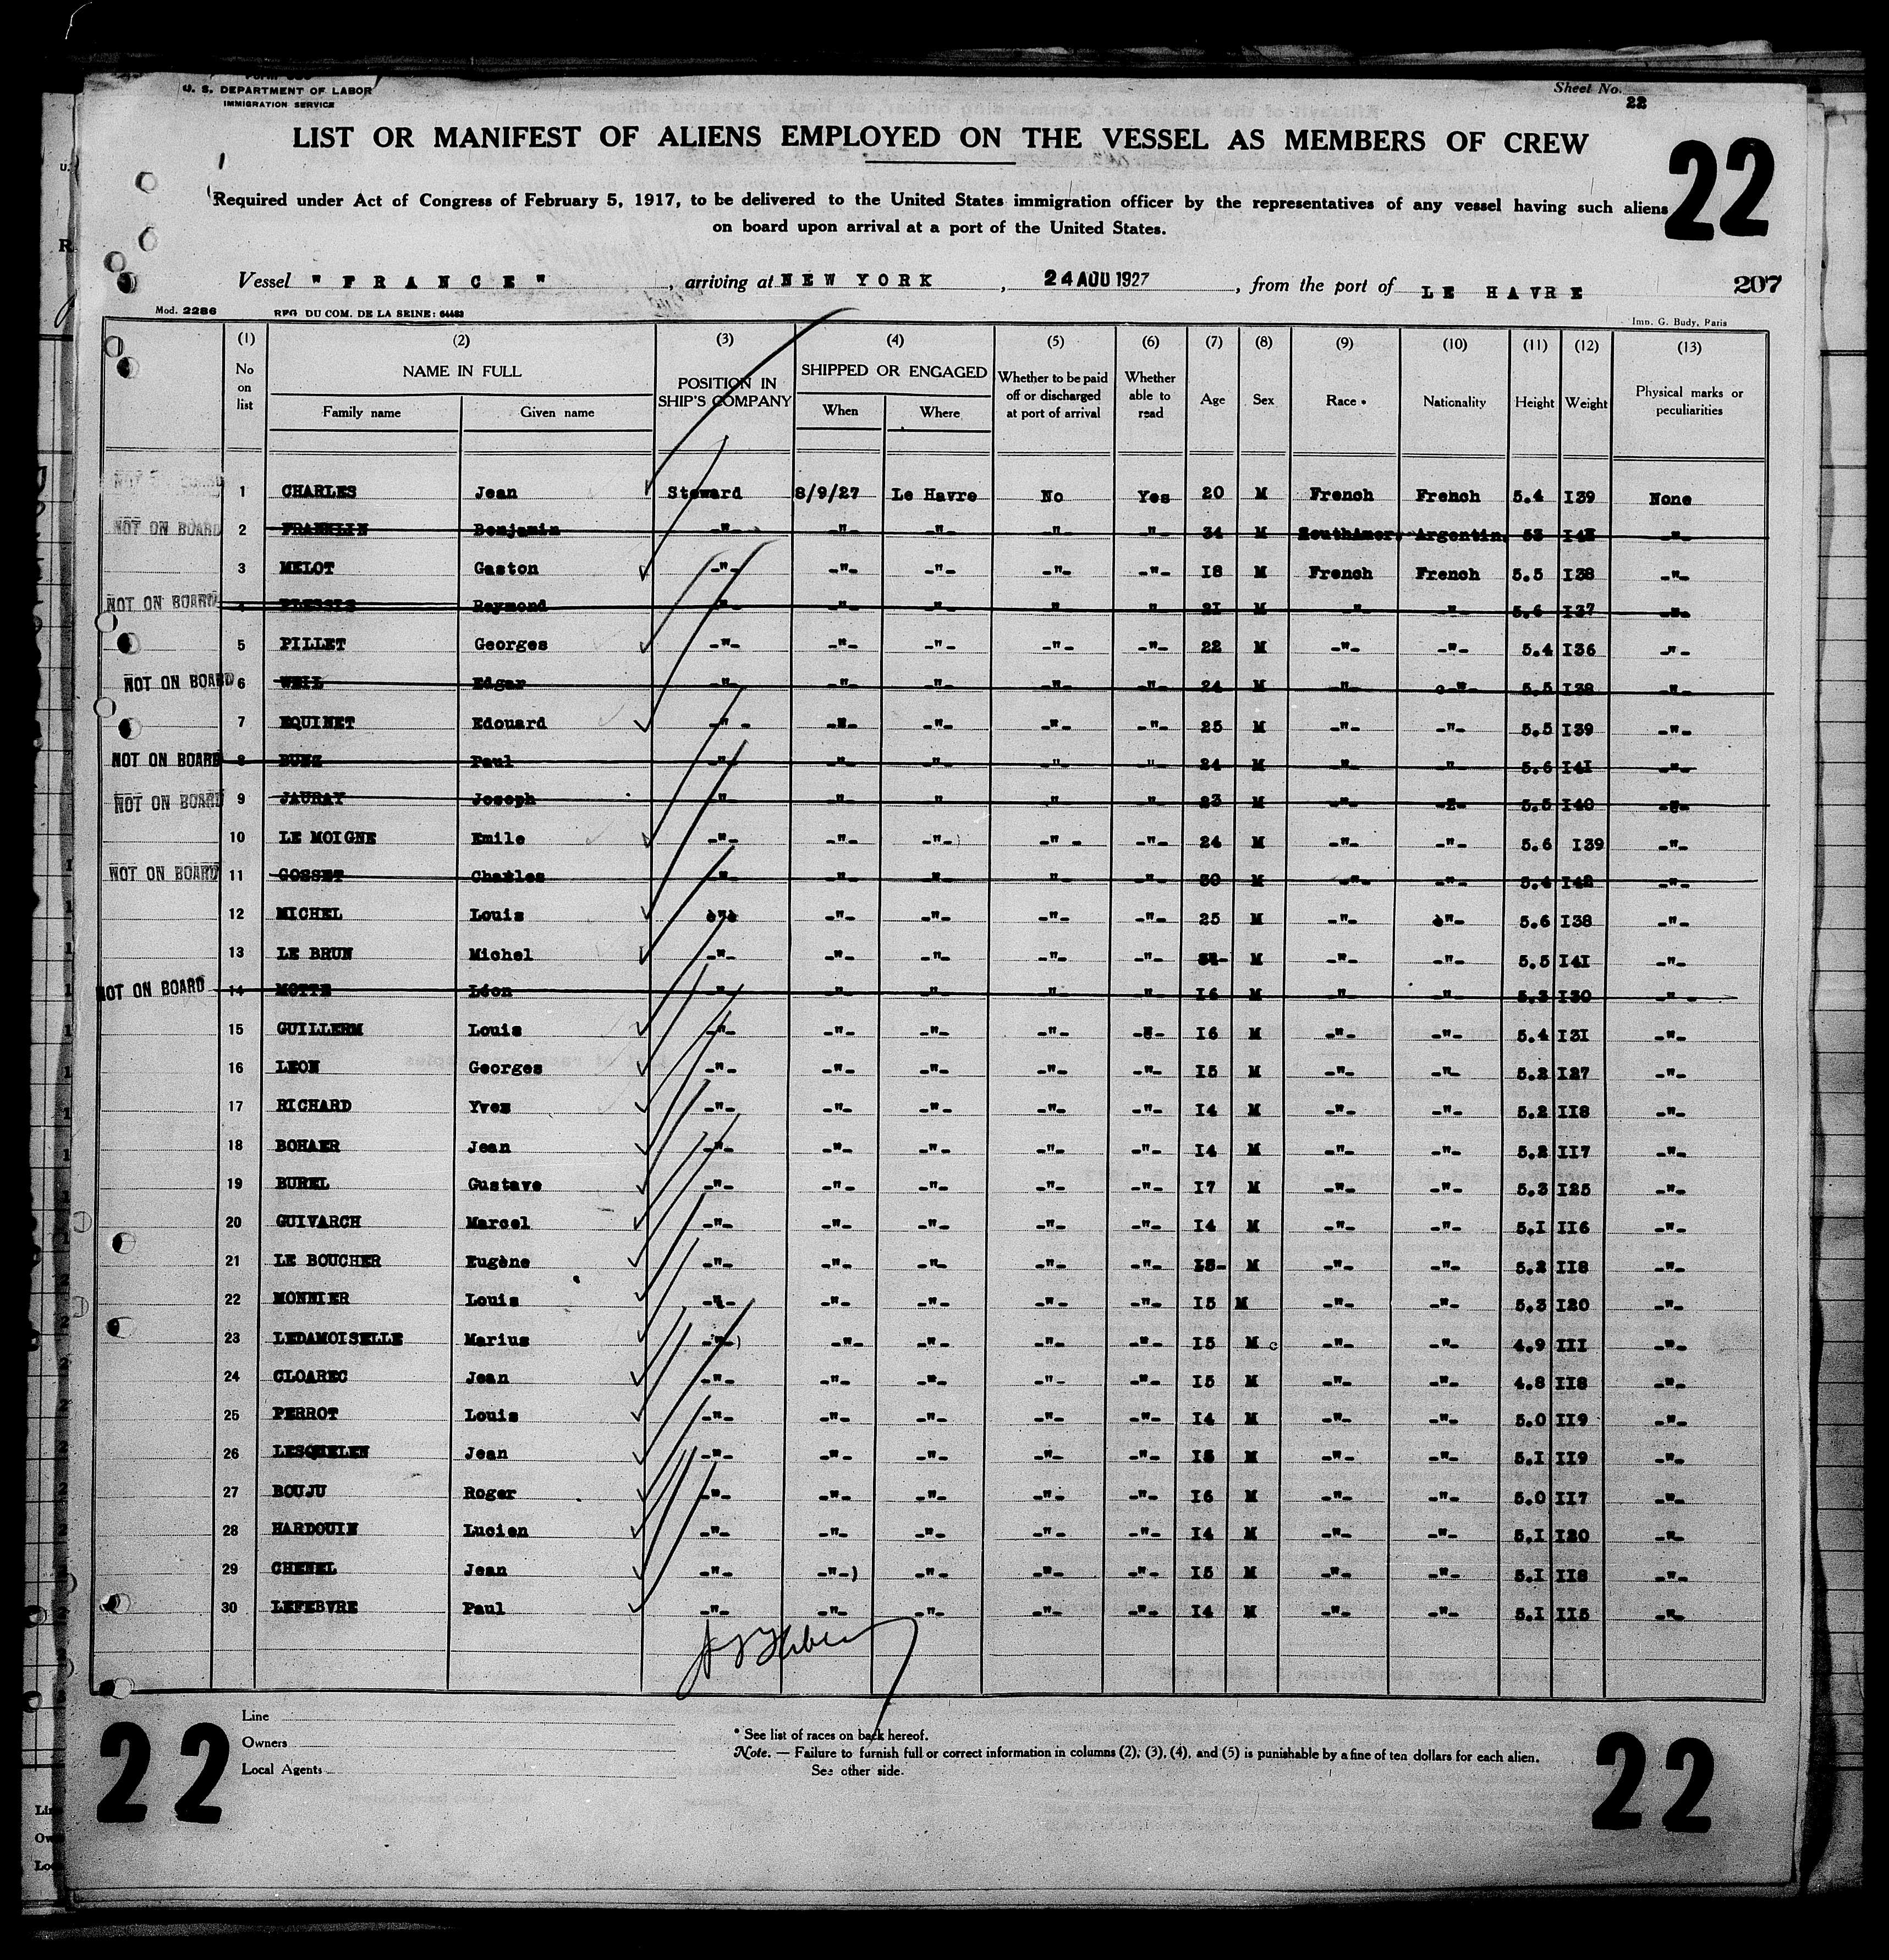 U. S. DEPARTMENT OF LABOR
IMMIGRATION SERVICE
Sheet No. 22
LIST OR MANIFEST OF ALIENS EMPLOYED ON THE VESSEL AS MEMBERS OF CREW
22
Required under Act of Congress of February 5, 1917, to be delivered to the United States immigration officer by the representatives of any vessel having such aliens
on board upon arrival at a port of the United States.
Vessel "FRANCE", arriving at NEW YORK, 24 AOU 1927, from the port of LE HAVRE
207
Mod. 2286 REG DU COM. DE LA SEINE: 64483 Imp. G. Budy, Paris
(1) (2) (3) (4) (5) (6) (7) (8) (9) (10) (11) (12) (13)
No on list NAME IN FULL Family name Given name POSITION IN SHIP'S COMPANY SHIPPED OR ENGAGED When Where Whether to be paid off or discharged at port of arrival Whether able to read Age Sex Race * Nationality Height Weight Physical marks or peculiarities
1 CHARLES Jean Steward 8/9/27 Le Havre No Yes 20 M French French 5.4 I39 None
NOT ON BOARD 2 FRANKLIN Benjamin -"- -"- -"- -"- -"- 34 M SouthAmer. Argentin. 53
3 MELOT Gaston -"- -"- -"- -"- -"- I8 M French French 5.5 I38 -"-
NOT ON BOARD 4 PLESSIS Raymond " " " " " 2I M " " 5.6 I37 -"-
5 PILLET Georges -"- -"- -"- -"- -"- 22 M -"- -"- 5.4 I36 -"-
NOT ON BOARD 6 WEIL Edgar -"- -"- -"- -"- -"- 24 M -"- -"- 5.5 I38 -"-
7 EQUINET Edouard -"- -"- -"- -"- -"- 25 M -"- -"- 5.5 I39 -"-
NOT ON BOARD 8 BUNZ Paul -"- -"- -"- -"- -"- 24 M -"- -"- 5.6 I4I -"-
NOT ON BOARD 9 JAURAY Joseph " " " " " 23 M -"- -"- 5.5 I40 -"-
10 LE MOIGNE Emile -"- -"- -"- -"- -"- 24 M -"- -"- 5.6 I39 -"-
NOT ON BOARD 11 GOSSET Charles " " " " " 30 M -"- -"- 5.4 I42 -"-
12 MICHEL Louis -"- -"- -"- -"- -"- 25 M -"- -"- 5.6 I38 -"-
13 LE BRUN Michel -"- -"- -"- -"- -"- M -"- -"- 5.5 I4I -"-
NOT ON BOARD 14 MOTTE Léon " " " " " I6 M -"- -"- 5.3 I30 -"-
15 GUILLERM Louis -"- -"- -"- -"- -"- I6 M -"- -"- 5.4 I3I -"-
16 LEON Georges -"- -"- -"- -"- -"- I5 M -"- -"- 5.2 I27 -"-
17 RICHARD Yves -"- -"- -"- -"- -"- I4 M -"- -"- 5.2 II8 -"-
18 BOHAER Jean -"- -"- -"- -"- -"- I4 M -"- -"- 5.2 II7 -"-
19 BUREL Gustave -"- -"- -"- -"- -"- I7 M -"- -"- 5.3 I25 -"-
20 GUIVARCH Marcel -"- -"- -"- -"- -"- I4 M -"- -"- 5.I II6 -"-
21 LE BOUCHER Eugène -"- -"- -"- -"- -"- M -"- -"- 5.2 II8 -"-
22 MONNIER Louis -"- -"- -"- -"- -"- I5 M -"- -"- 5.3 I20 -"-
23 LEDAMOISELLE Marius -"- -"- -"- -"- -"- I5 M c -"- -"- 4.9 III -"-
24 CLOAREC Jean -"- -"- -"- -"- -"- I5 M -"- -"- 4.8 II8 -"-
25 PERROT Louis -"- -"- -"- -"- -"- I4 M -"- -"- 5.0 II9 -"-
26 LESQUELEN Jean -"- -"- -"- -"- -"- M -"- -"- 5.I II9 -"-
27 BOUJU Roger -"- -"- -"- -"- -"- I6 M -"- -"- 5.0 II7 -"-
28 HARDOUIN Lucien -"- -"- -"- -"- -"- I4 M -"- -"- 5.I I20 -"-
29 CHENEL Jean -"- -"-) -"- -"- -"- I5 M -"- -"- 5.I II8 -"-
30 LEFEBVRE Paul -"- -"- -"- -"- -"- I4 M -"- -"- 5.I II5 -"-
22
Line
Owners
Local Agents
* See list of races on back hereof.
Note. — Failure to furnish full or correct information in columns (2), (3), (4), and (5) is punishable by a fine of ten dollars for each alien.
See other side.
22